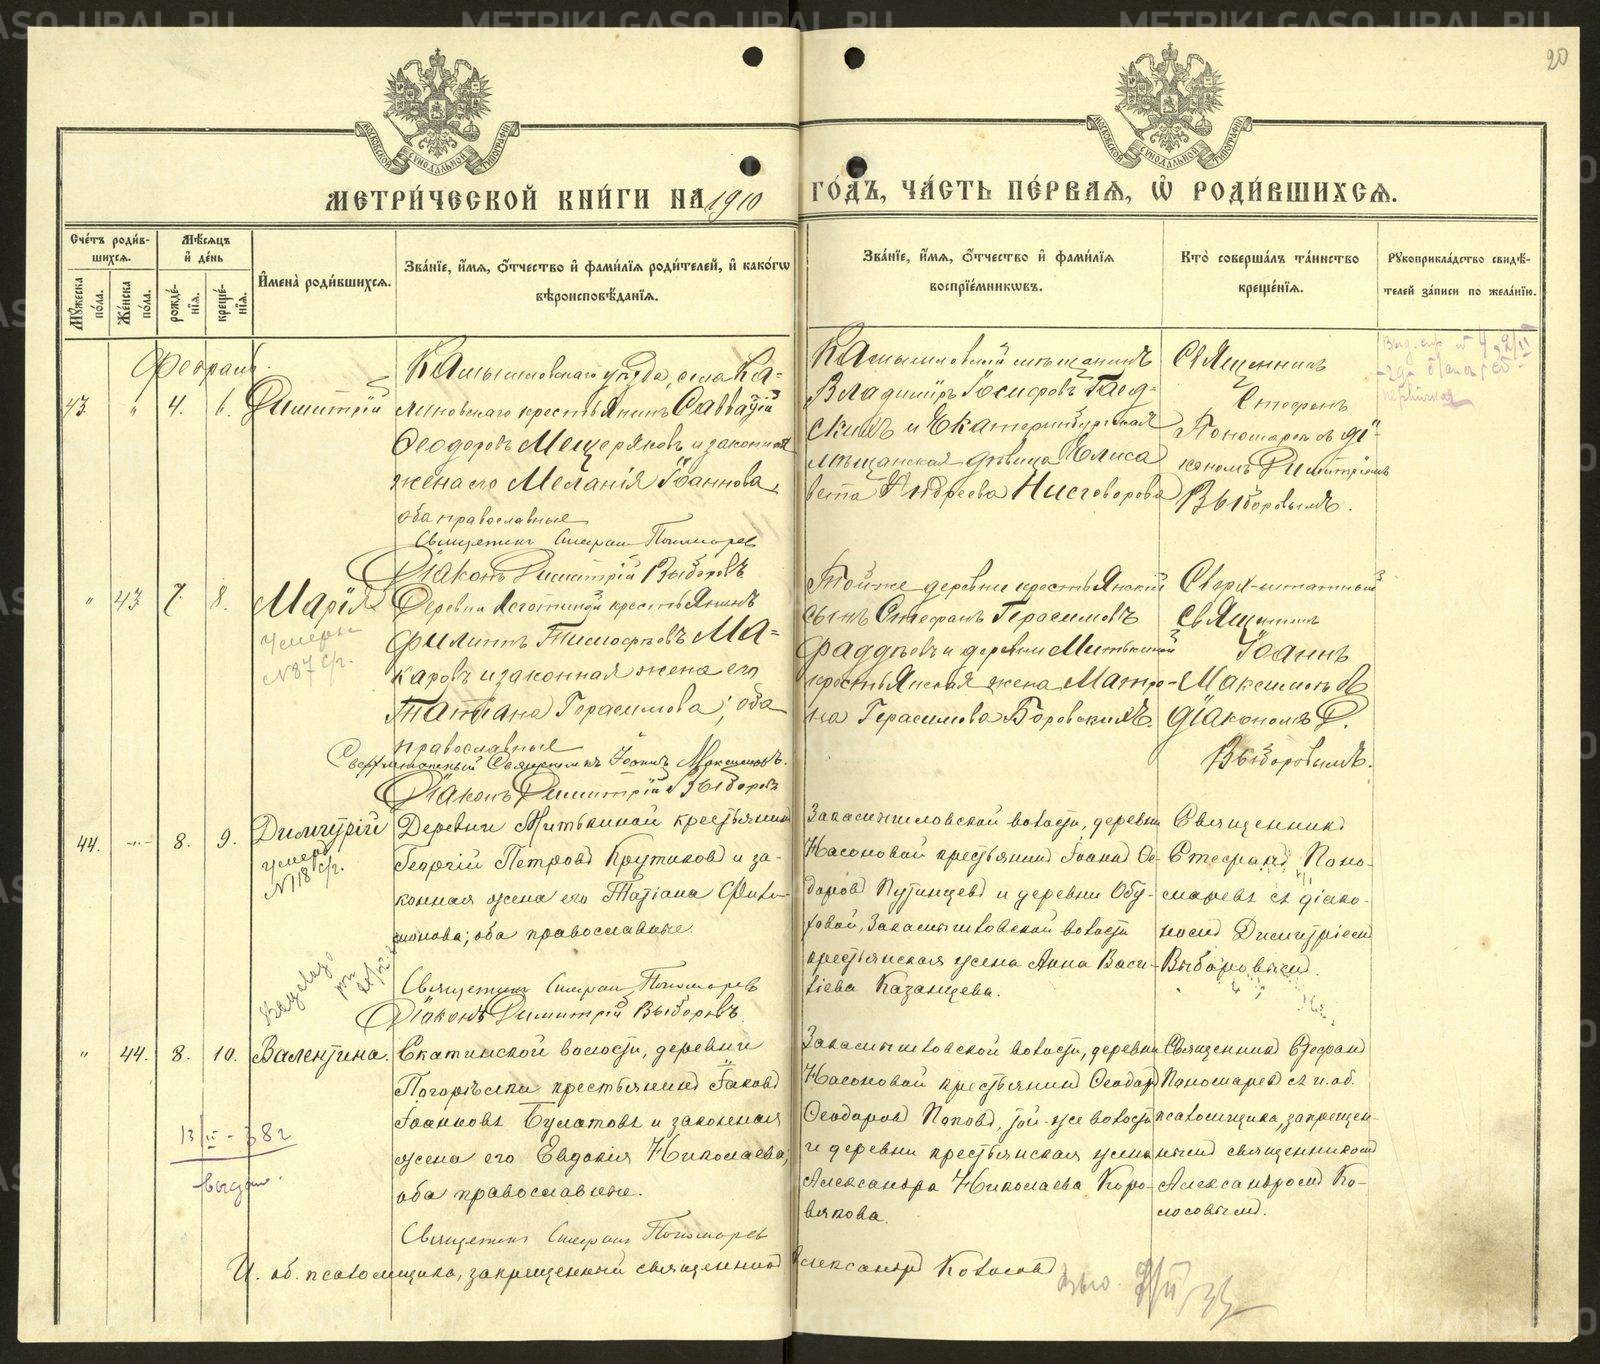 METRIKI.GASO-URAL.RU
20
МОСКОВСКОЙ СѴНОДАЛЬНОЙ ТИПОГРАФІИ
МОСКОВСКОЙ СѴНОДАЛЬНОЙ ТИПОГРАФІИ
МЕТРИ́ЧЕСКОЙ КНИ́ГИ НА 1910 ГО́ДЪ, ЧА́СТЬ ПЕ́РВАЯ, Ѡ҆ РОДИ́ВШИХСЯ.
Сче́тъ роди́в-
шихся.
Мꙋ́жеска по́ла.
Же́нска по́ла.
Мѣ́сяцъ и҆ де́нь
рожде́-
нїя.
креще́-
нїя.
И҆мена̀ роди́вшихся.
Зва́нїе, и҆́мя, ѻ҆́тчество и҆ фами́лїя роди́телей, и҆ како́гѡ
вѣроисповѣ́данїя.
Зва́нїе, и҆́мя, ѻ҆́тчество и҆ фами́лїя
воспрїе́мникѡвъ.
Кто̀ соверша́лъ та́инство
креще́нїя.
Рꙋкоприкла́дство свидѣ́-
телей за́писи по жела́нїю.
Февраль.
43. " 4. 6. Димитрій
Камышловскаго уѣзда, села Ка-
линовскаго крестьянинъ Савватій
Ѳеодоровъ Мещеряковъ и законная
жена его Меланія Іоаннова,
оба православные
Священникъ Стефанъ Пономарев
Діаконъ Димитрій Выборовъ
Камышловскій мѣщанинъ
Владиміръ Іосифовъ Гаед-
скихъ и Екатеринбургская
мѣщанская дѣвица Елиса
вета Андреева Нисговорова
Священник
Стефанъ
Пономарев съ ді-
кономъ Димитріемъ
Выборовымъ.
" 43 7. 8. Марія
Умерла
№87 с/г.
Деревни крестьянинъ
Филиппъ Тимофеевъ Ма-
каровъ и законная жена его
Татіана Герасимова; оба
православные
Сверхштатный Священникъ Іоаннъ Максимовъ.
Діаконъ Димитрій Выборовъ
Тойже деревни крестьянскій
сынъ Стефанъ Герасимовъ
Фаддѣевъ и деревни Митькиной
крестьянская жена Матро-
на Герасимова Боровскихъ.
Сверх-штатный
Священникъ
Іоаннъ
Максимов
діакономъ Д.
Выборовымъ.
44. -"- 8. 9. Димитрій
умеръ
№118 с/г.
Деревни Митькиной крестьянинъ
Георгій Петровъ Крутиковъ и за-
конная жена его Татіана Фили-
монова; оба православные.
Священникъ Стефанъ Пономарев
Діаконъ Димитрій Выборовъ.
деревни
Насоновой крестьянинъ Іоаннъ Ѳе-
доровъ Путинцевъ и деревни Обу-
ховой,
крестьянская жена Анна Васи-
ліева Казанцева.
Священникъ
Стефанъ Поно-
маревъ съ діако-
номъ Димитріемъ
Выборовымъ.
" 44. 8. 10. Валентина.
13/II - 382
выдано.
Скатинской волости, деревни
Погорѣлки крестьянинъ Іаковъ
Іоанновъ Булатовъ и законная
жена его Евдокія Николаева,
оба православные.
Священникъ Стефанъ Пономарев
деревни
Насоновой крестьянинъ Ѳеодоръ
Ѳеодоровъ Поповъ, той-же волости
и деревни крестьянская жена
Александра Николаева Коро-
влкова.
Священникъ Стефанъ
Пономаревъ съ и. об.
псаломщика, запрещен-
нымъ священникомъ
Александромъ Ко-
лосовымъ.
И. об. псаломщика, запрещенный священникъ Александръ Колосовъ